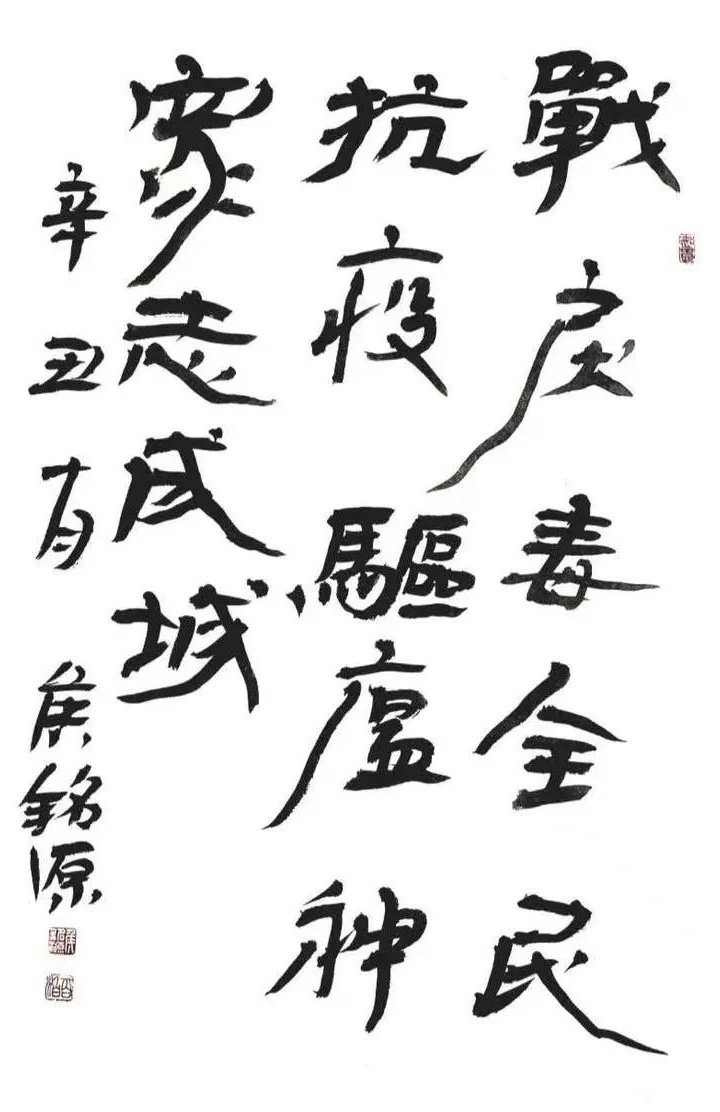 戰戾毒全民
抗疫驅瘟神
眾志成城
辛丑有 侯銘源